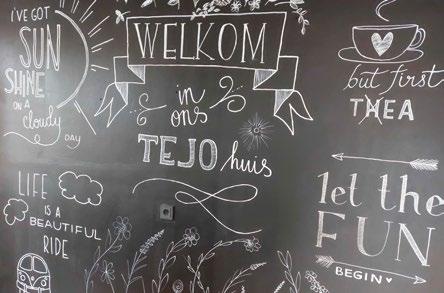 I'VE GOT
SUN
SHINE
ON A
cloudy
DAY
WELKOM
in
ons
TEJO huis
but first
THEA
LIFE
IS A
BEAUTIFUL
RIDE
let the
FUN
BEGIN